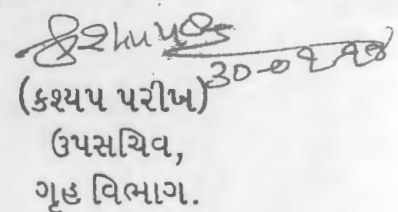 (કશ્યપ પરીખ)
ઉપસચિવ,
ગૃહ વિભાગ.